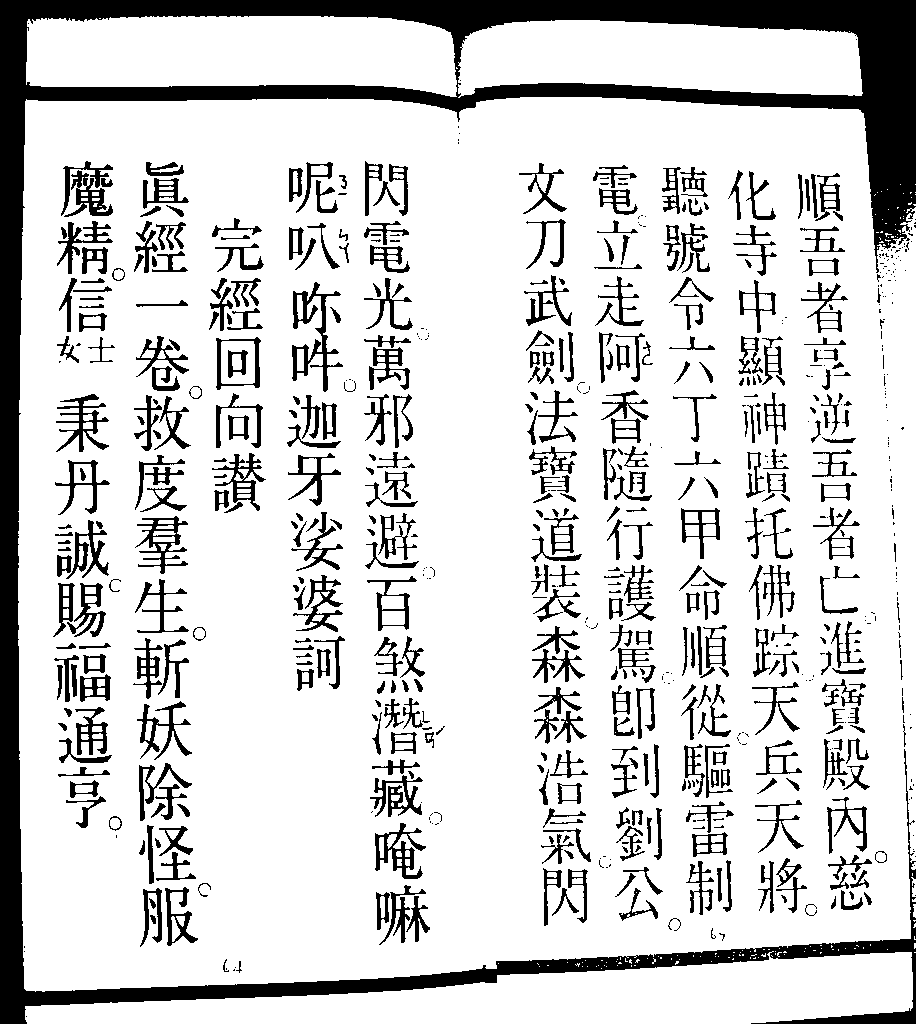 順吾者享逆吾者亡。進寶殿內。慈
化寺中顯神蹟托佛踪。天兵天將。
聽號令六丁六甲命順從。驅雷制
電。立走阿香隨行護駕。卽到劉公。
文刀武劍。法寶道裝。森森浩氣。閃
閃電光。萬邪遠避。百煞潛藏。唵嘛
呢叭㖇吽。迦牙娑婆訶
完經回向讃
眞經一卷。救度羣生。斬妖除怪。服
魔精。信士女秉丹誠。賜福通亨。
64